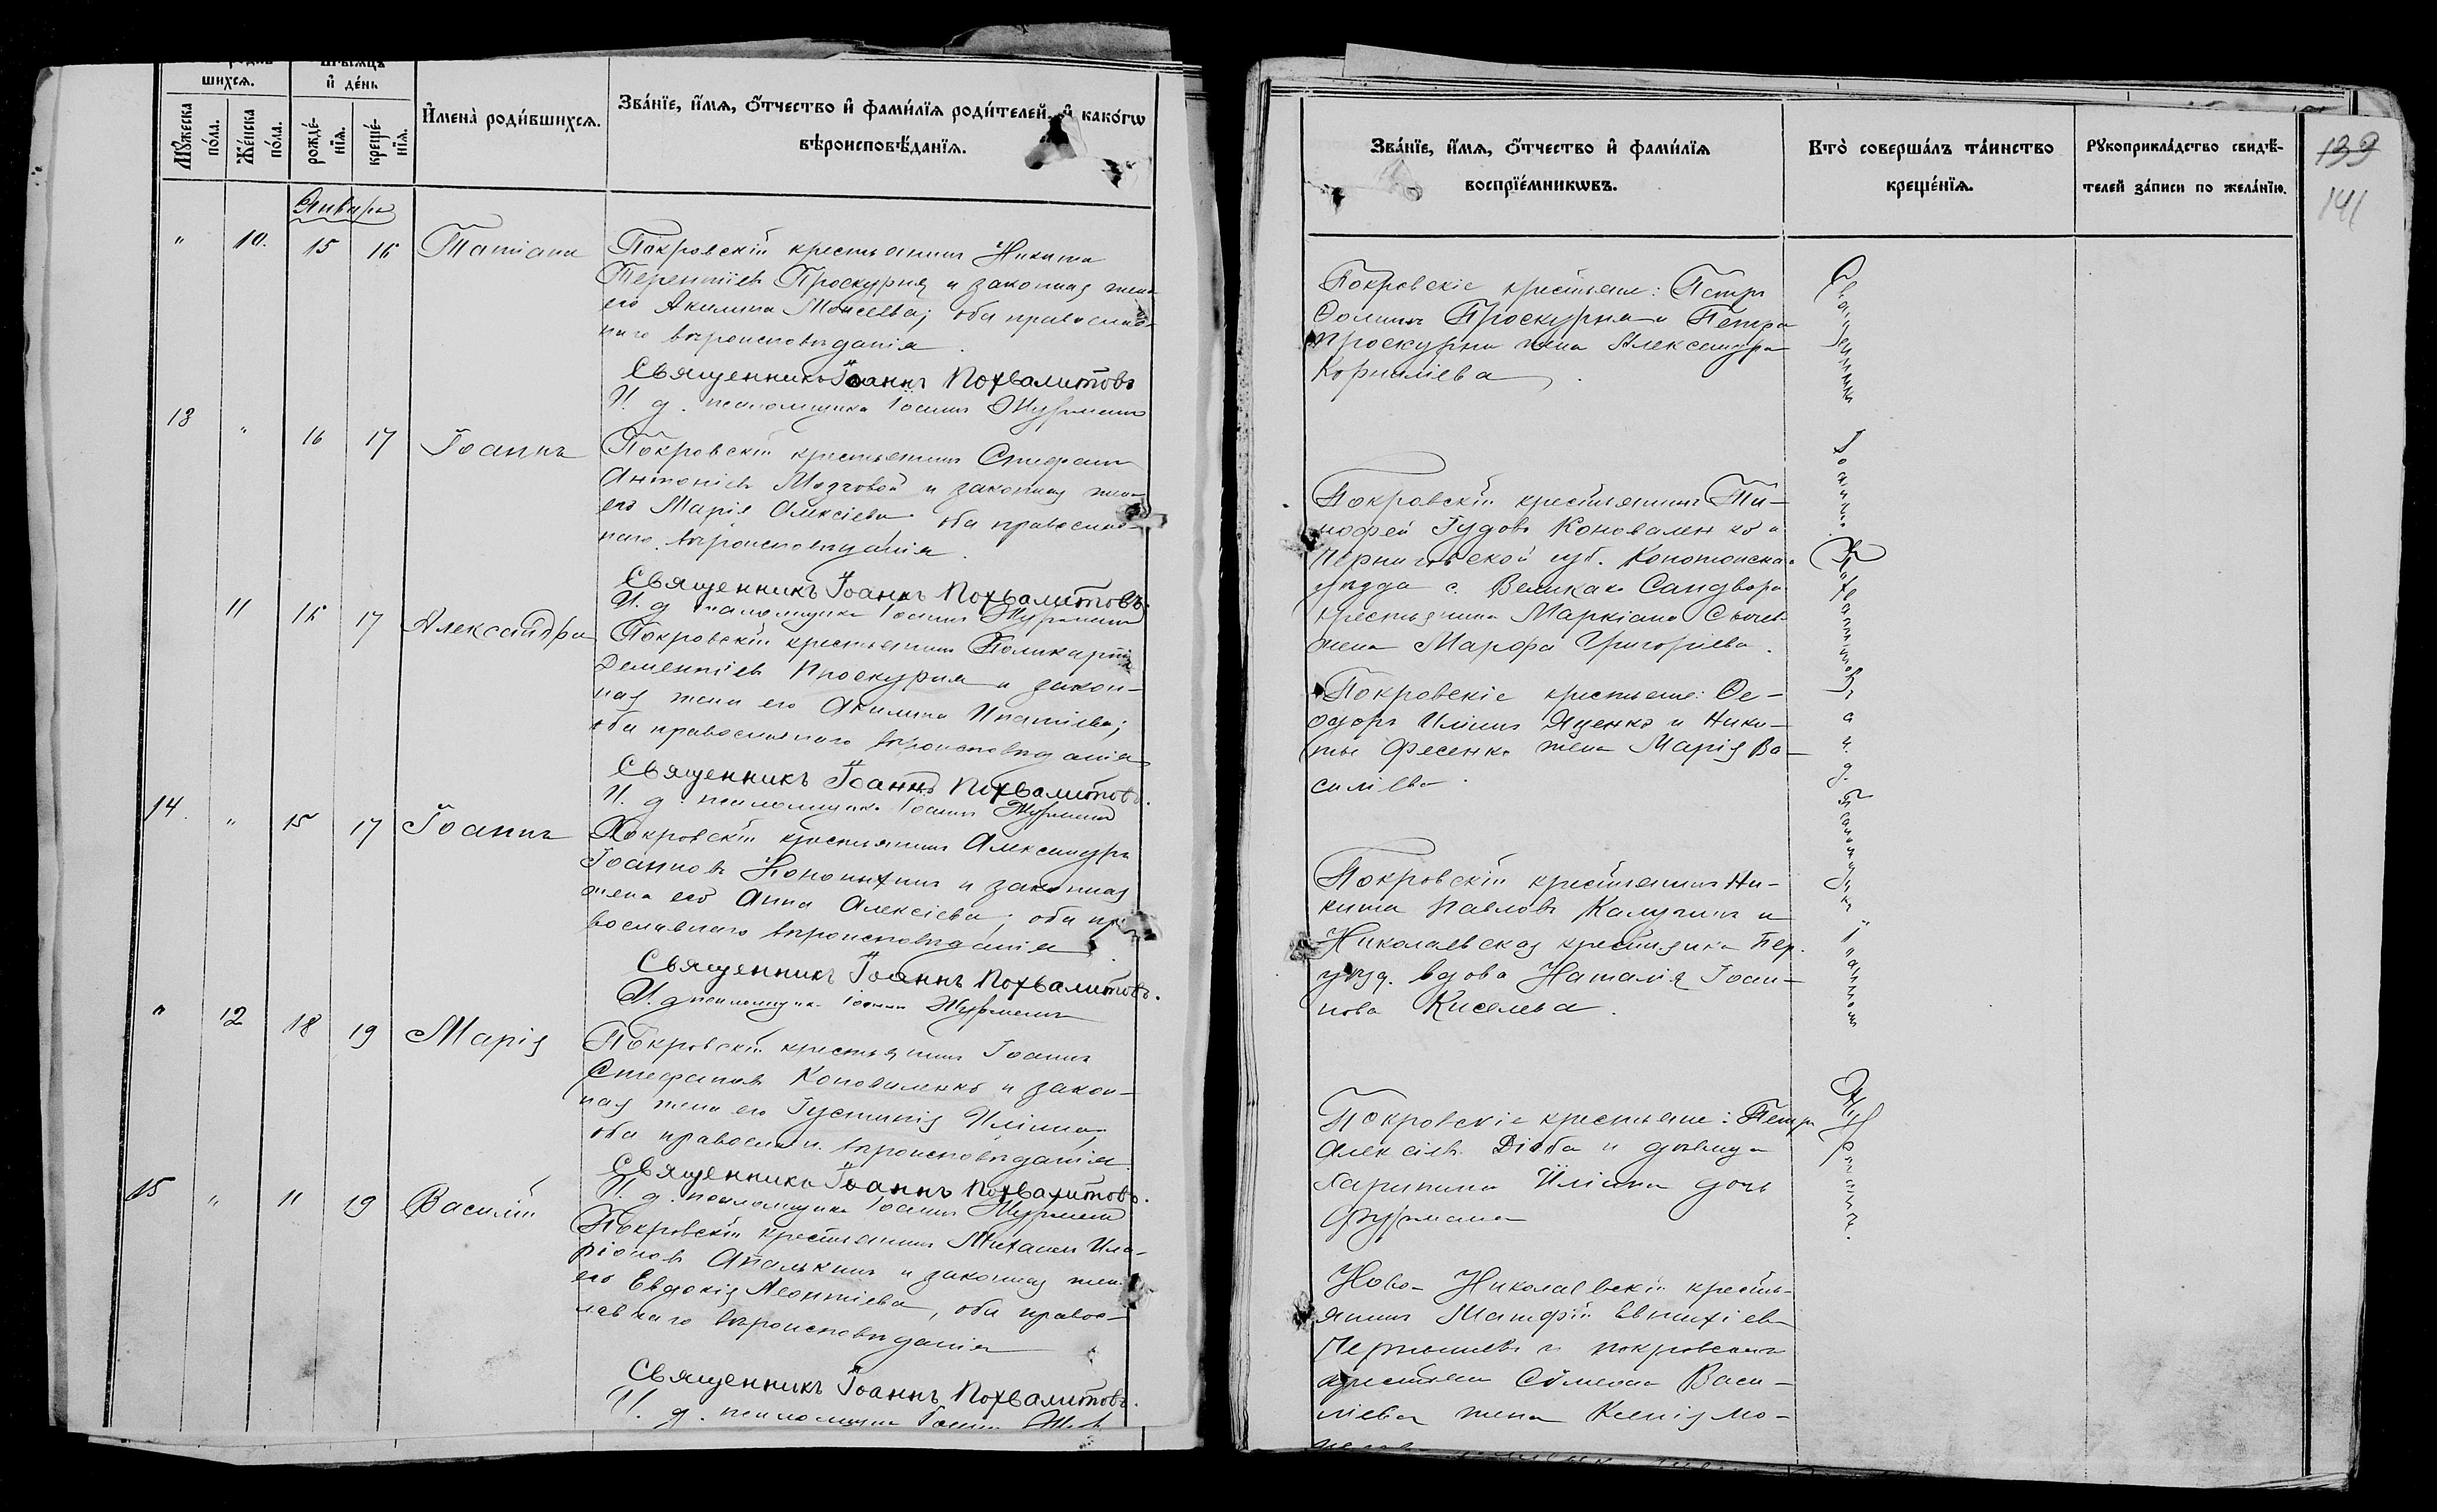 шихсѧ.
и҆ де́нь
Мꙋ́жеска по́ла.
Же́нска по́ла.
рожде́-нїѧ.
креще́-нїѧ.
И҆мена̀ роди́вшихсѧ.
Зва́нїе, и҆́мѧ, ѻ҆́тчество и҆ фами́лїѧ роди́телей, и҆ како́гѡ
вѣроисповѣ́данїѧ.
Январь
" 10. 15 16 Татіана
Покровскій крестьянинъ Никита
Терентіевъ Проскурня и законная жена
его Акилина Моисеева; оба православ-
наго вѣроисповѣданія.
Священникъ Іоаннъ Похвалитовъ
И. д. псаломщика Іоаннъ Журманъ
13 " 16 17 Іоаннъ
Покровскій крестьянинъ Стефанъ
Антоніевъ Мозговой и законная жена
его Марія Алексіева оба православ-
наго вѣроисповѣданія.
Священникъ Іоаннъ Похвалитовъ.
И. д. псаломщика Іоаннъ Журманъ
11 16 17 Александра
Покровскій крестьянинъ Поликарпъ
Дементіевъ Проскурня и закон-
ная жена его Акилина Ипатіева;
оба православнаго вѣроисповѣданія
Священникъ Іоаннъ Похвалитовъ.
И. д. псаломщика Іоаннъ Журманъ
14. " 15 17 Іоаннъ
Покровскій крестьянинъ Александръ
Іоанновъ и законная
жена его Анна Алексіева; оба пра-
вославнаго вѣроисповѣданія
Священникъ Іоаннъ Похвалитовъ.
И. д. псаломщика Іоаннъ Журманъ
" 12 18 19 Марія
Покровскій крестьянинъ Іоаннъ
Стефановъ Коноваленко и закон-
ная жена его Іустинія Иліина
оба православн. вѣроисповѣданія
Священникъ Іоаннъ Похвалитовъ.
И. д. псаломщика Іоаннъ Журманъ
15 " 11 19 Василій
Покровскій крестьянинъ Михаилъ Ила-
ріоновъ Апалькинъ и законная жена
его Евдокія Леонтіева, оба правос-
лавнаго вѣроисповѣданія
Священникъ Іоаннъ Похвалитовъ.
И. д. псаломщика Іоаннъ
Зва́нїе, и҆́мѧ, ѻ҆́тчество и҆ фами́лїѧ
воспрїе́мникѡвъ.
Кто̀ соверша́лъ та́инство
креще́нїѧ.
Рꙋкоприкла́дство свидѣ́-
телей за́писи по жела́нїю.
139
141
Покровскіе крестьяне: Петръ
Проскурня и Петра
Проскурни жена Александра
Корниліева
Покровскій крестьянинъ Ти-
мофей Гудовъ Коноваленко и
Черниговской губ. Конотопска
уѣзда с. Великаго
крестьянина Маркіана
жена Марфа Григоріева.
Покровскіе крестьяне: Ѳе-
одоръ Иліинъ Яценко и Ники-
ты Фесенко жена Марія Ва-
силіева.
Покровскій крестьянинъ Ни-
кита Павловъ Калугинъ и
Николаевская крестьянка Бер.
уѣзд. вдова Наталія Іоан-
нова Киселева.
Покровскіе крестьяне: Петръ
Алексіевъ Дзюба и дѣвица
Харитина Иліина дочь
Фурмана
Ново-Николаевскій кресть-
янинъ Матфій Евтихіевъ
Чернышевъ и покровскаго
крестьян Симеона Васи-
ліева жена Ксенія Мо-
Священникъ Іоаннъ Похвалитовъ
и. д. Псаломщика Іоаннъ
Журманъ.